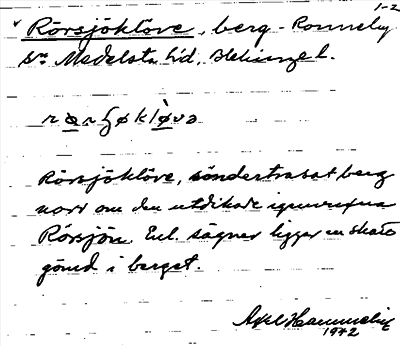 1-2
Rörsjöklöve, berg - Ronneby
sn Medelsta hd, Blekinge l.
Rörsjöklöve, söndertrasat berg
norr om den utdikade igenvuxna
Rörsjön. Enl. sägner ligger en skatt
gömd i berget.
Axel
1972